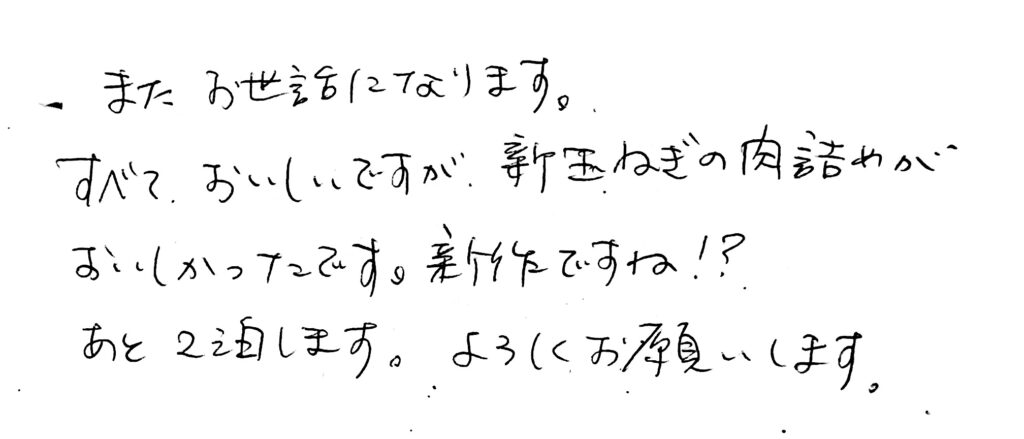 またお世話になります。
すべて、おいしいですが、新玉ねぎの肉詰めが
おいしかったです。新作ですね!?
あと2泊します。よろしくお願いします。